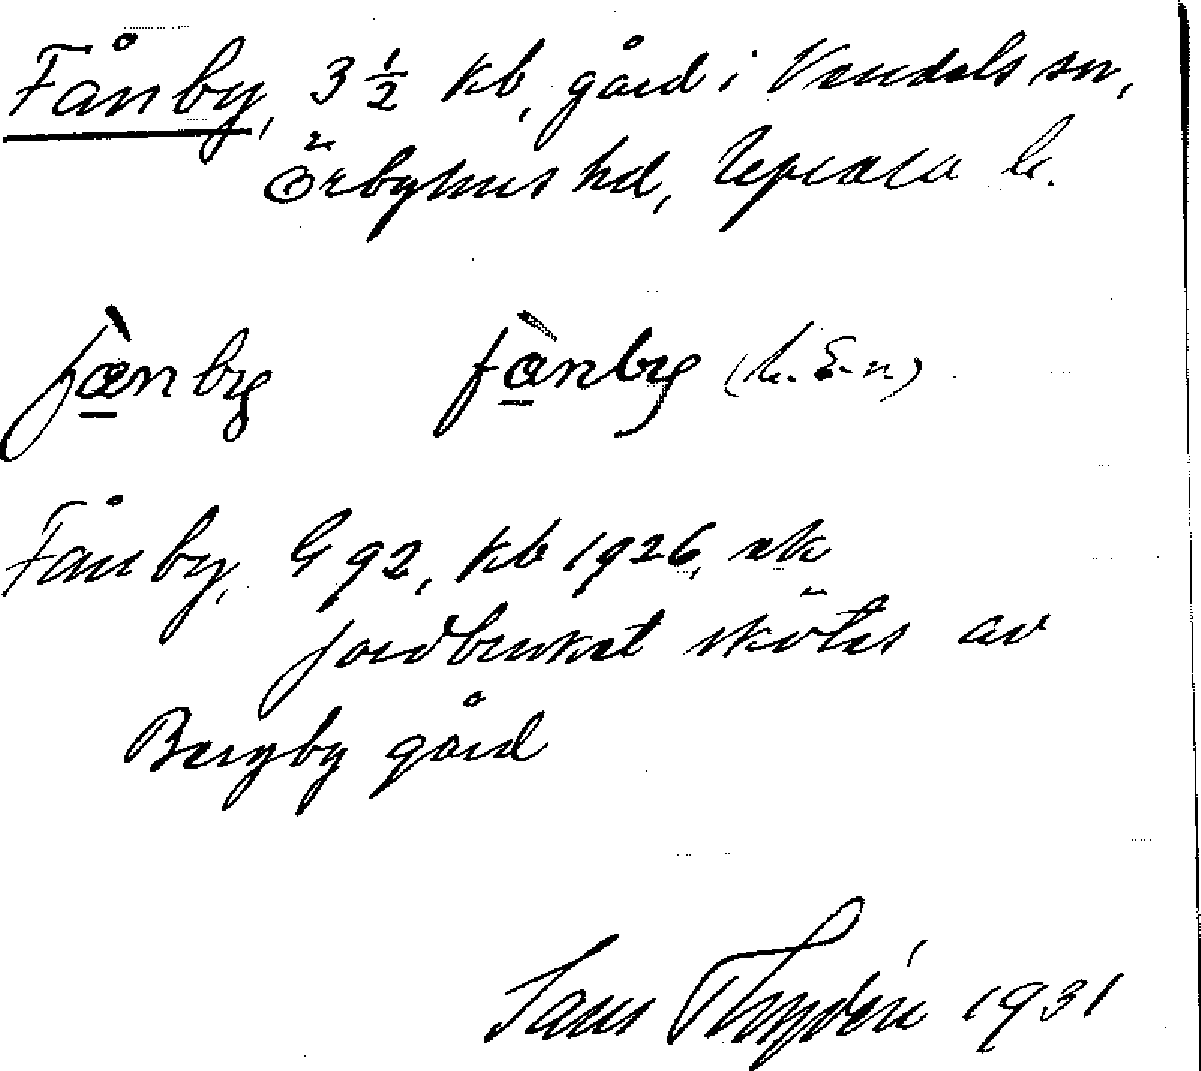 Fånby, 3 ½ kb, gård i Vendels sn,
Örbyhus hd, Uppsala l.
fæ̀nby fæ̀nby (L. E-n)
Fånby, G 92, kb 1926, ek
jordbruket skötes av
Bergby gård
Sam Thydén 1931